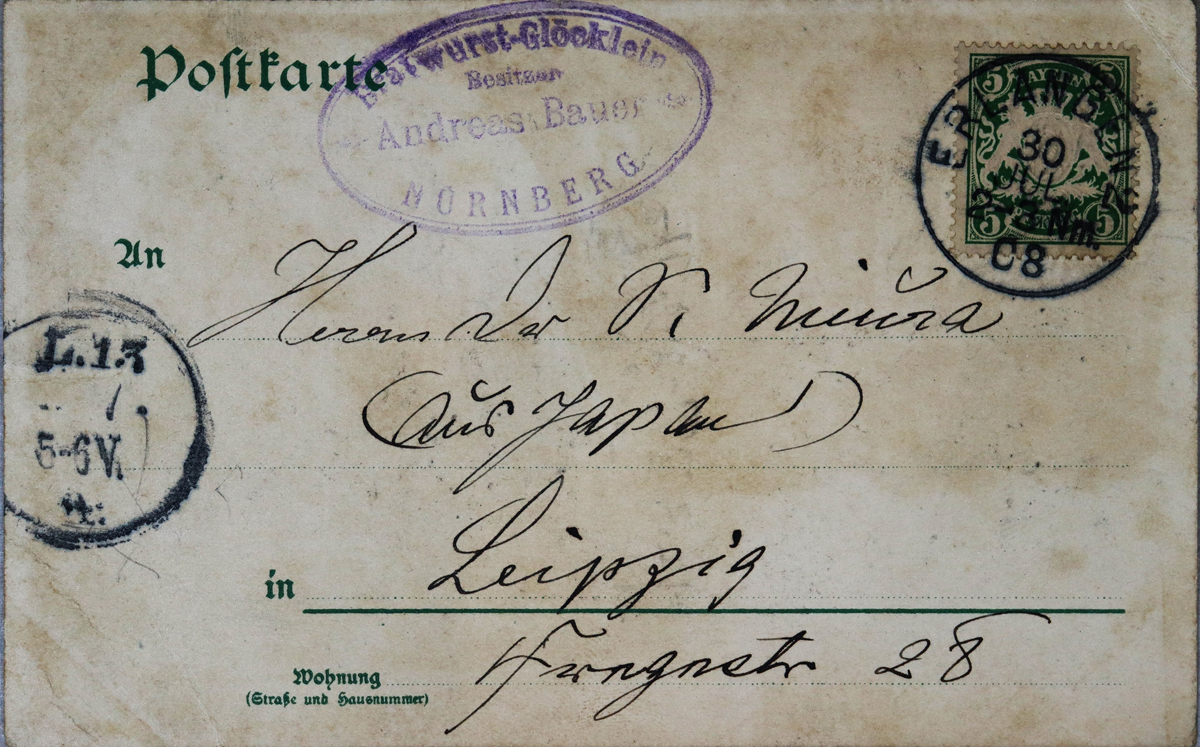 Postkarte
Bratwurst-Glöcklein
Besitzer
Andreas Bauer
NÜRNBERG
BAYERN
5 5
5 5
ERLANGEN 2
30
JUL
2-3 Nm.
08
An
Herrn Dr S. Miura
(aus Japan)
L.13
7.
5-6V.
4.
in
Leipzig
Wohnung
(Straße und Hausnummer)
Fregestr 28